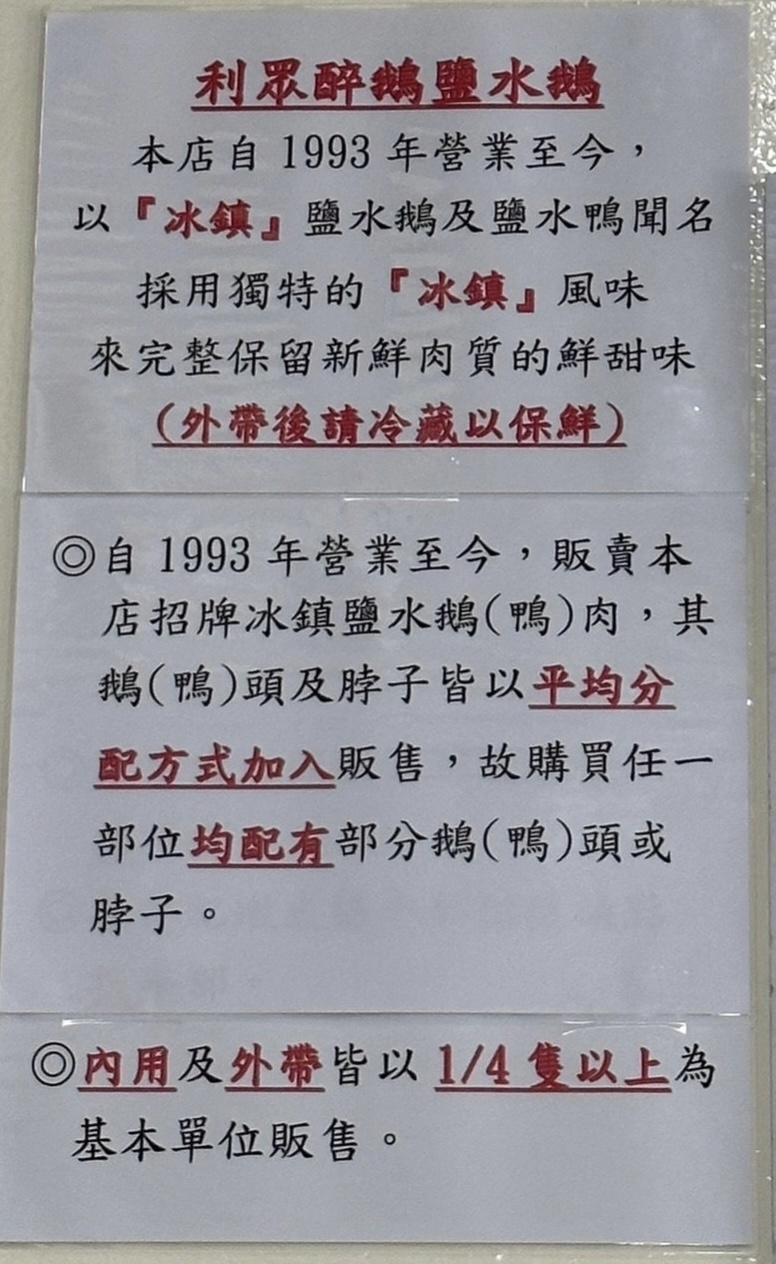 利眾醉鵝鹽水鵝
本店自 1993 年營業至今，
以『冰鎮』鹽水鵝及鹽水鴨聞名
採用獨特的『冰鎮』風味
來完整保留新鮮肉質的鮮甜味
（外帶後請冷藏以保鮮）
◎自 1993 年營業至今，販賣本
店招牌冰鎮鹽水鵝(鴨)肉，其
鵝(鴨)頭及脖子皆以平均分
配方式加入販售，故購買任一
部位均配有部分鵝(鴨)頭或
脖子。
◎內用及外帶皆以 1/4 隻以上為
基本單位販售。